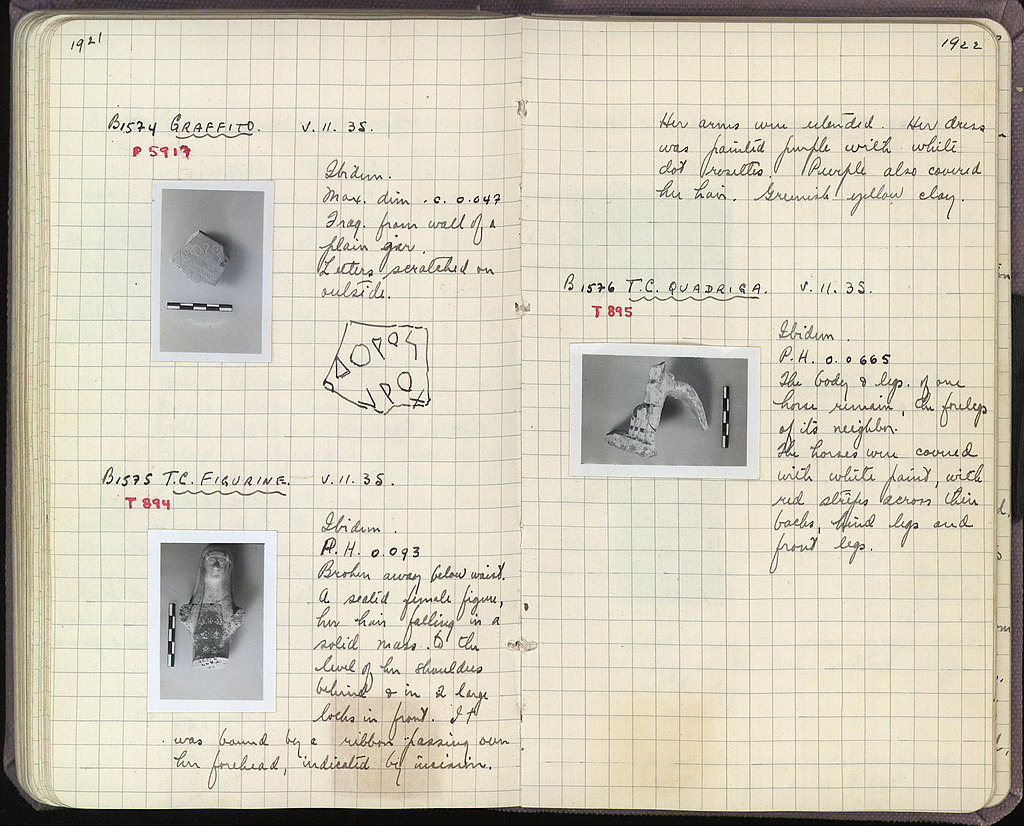 1921
B1574 GRAFFITO. V.11.35.
P 5917
Ibidem.
Max. dim. c. 0.047
Frag. from wall of a
plain jar.
Letters scratched on
outside.
B1575 T.C. FIGURINE. V.11.35.
T 894
Ibidem.
P.H. 0.093
Broken away below waist.
A seated female figure,
her hair falling in a
solid mass to the
level of her shoulders
behind & in 2 large
locks in front. It
was bound by a ribbon passing over
her forehead, indicated by incision.
1922
Her arms were extended. Her dress
was painted purple with white
dot rosettes. Purple also covered
her hair. Greenish yellow clay.
B1576 T.C. QUADRIGA. V.11.35.
T 895
Ibidem.
P.H. 0.0665
The body & legs. of one
horse remain, the forelegs
of its neighbor.
The horses were covered
with white paint, with
red stripes across their
backs, hind legs and
front legs.